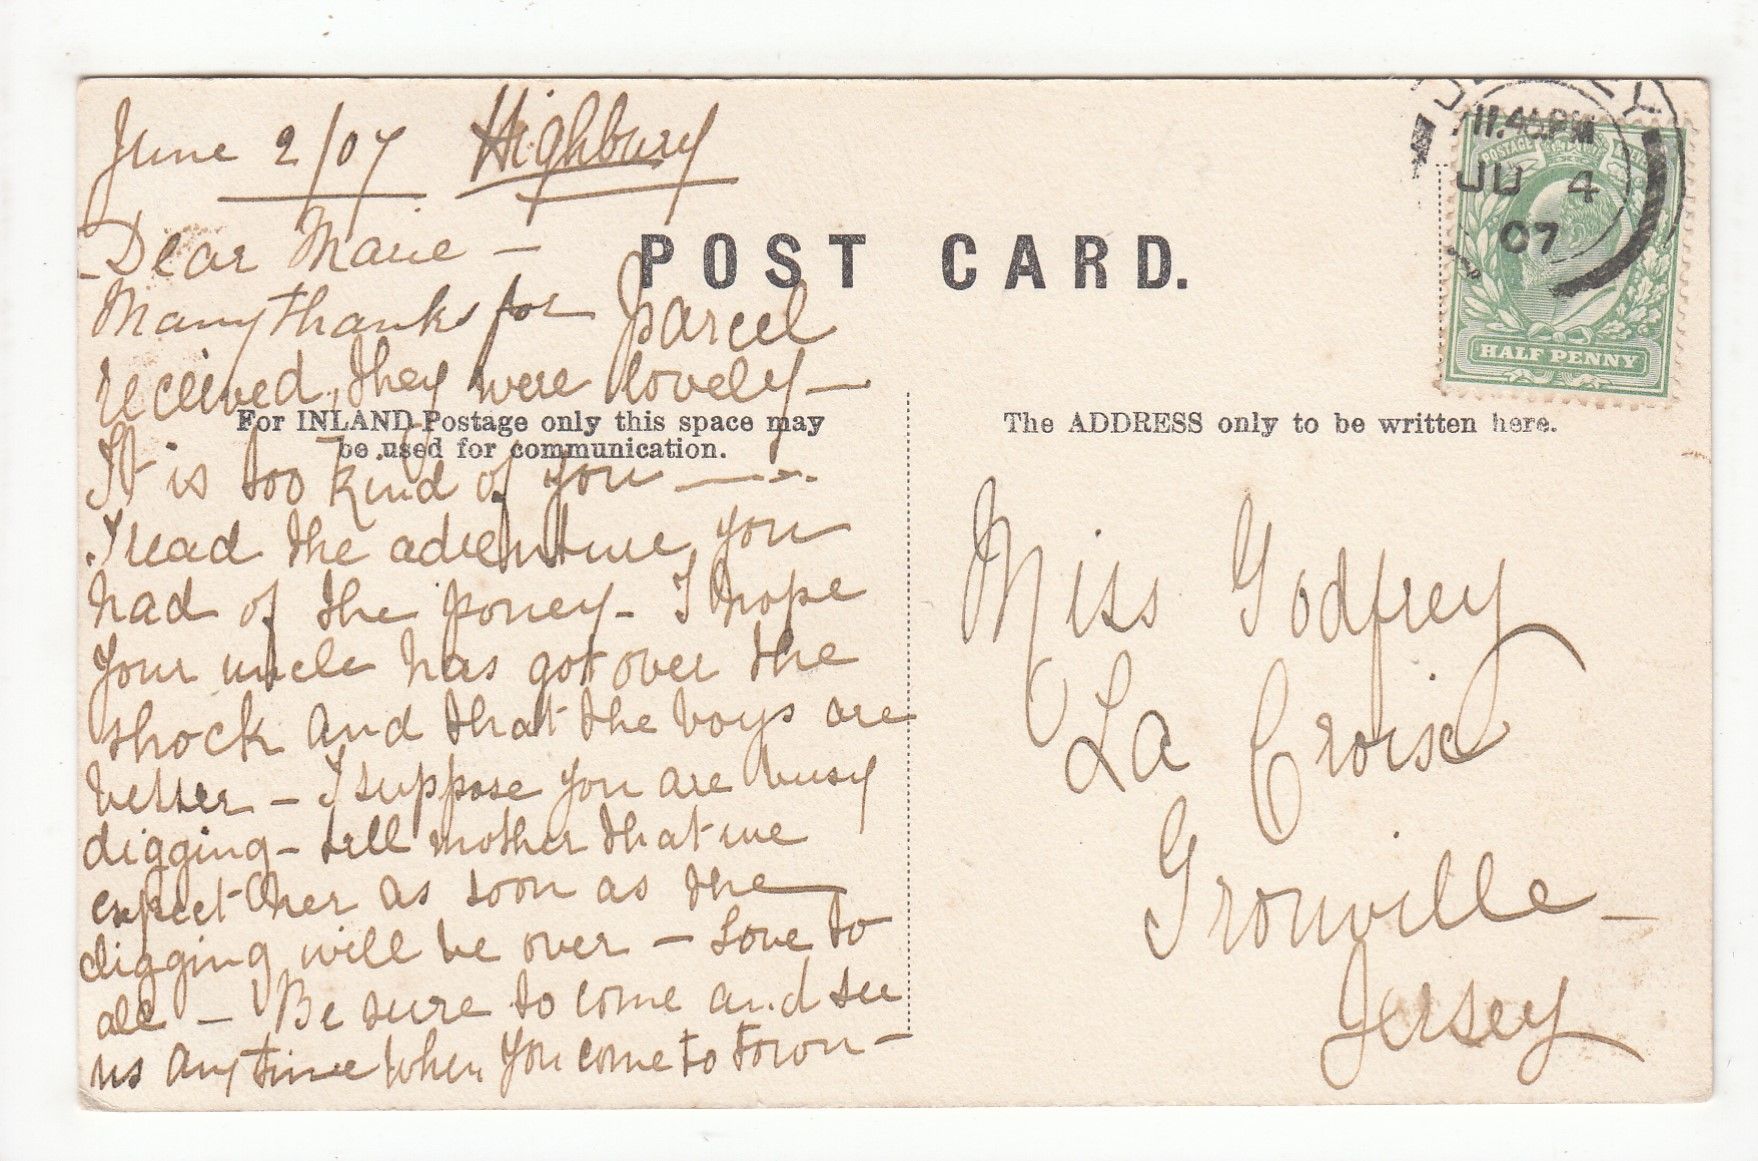 June 2/07 Highbury
Dear Marie -
Many thanks for parcel
received, they were lovely -
It is too kind of you
I read the adventure you
had of the poney - I hope
your uncle has got over the
shock and that the boys are
better - I suppose you are busy
digging - tell mother that we
expect her as soon as the
digging will be over - Love to
all - Be sure to come and see
us any time when you come to town -
POST CARD.
For INLAND Postage only this space may
be used for communication.
The ADDRESS only to be written here.
Miss Godfrey
La Croix
Grouville -
Jersey
JERSEY
11.45PM
JU 4
07
POSTAGE
HALF PENNY